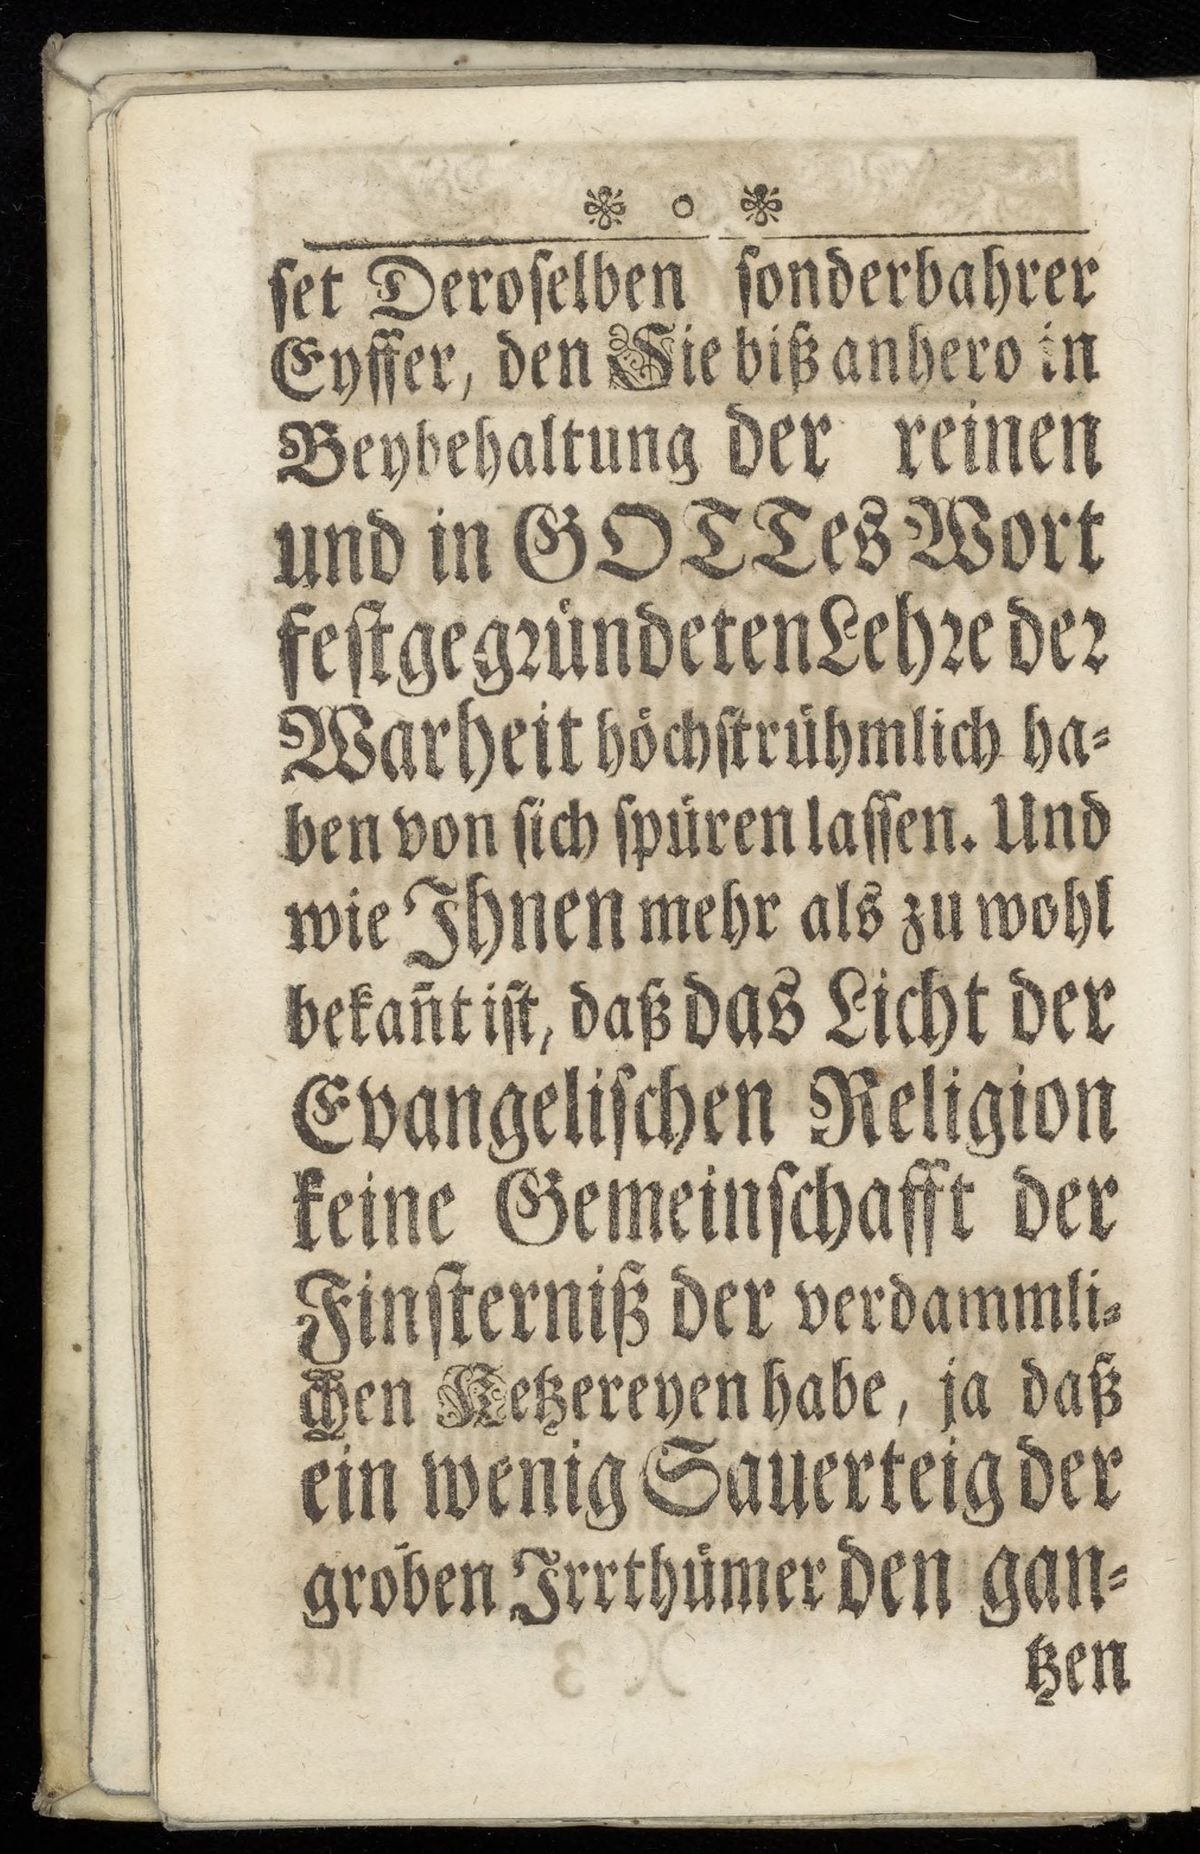 ſet Deroſelben ſonderbahrer
Eyffer, den Sie biß anhero in
Beybehaltung der reinen
und in GOTTes Wort
feſtgegründeten Lehre der
Warheit höchſtrühmlich ha-
ben von ſich ſpüren laſſen. Und
wie Ihnen mehr als zu wohl
bekañt iſt, daß das Licht der
Evangeliſchen Religion
keine Gemeinſchafft der
Finſterniß der verdammli-
chen Ketzereyen habe, ja daß
ein wenig Sauerteig der
groben Irrthümer den gan-
tzen